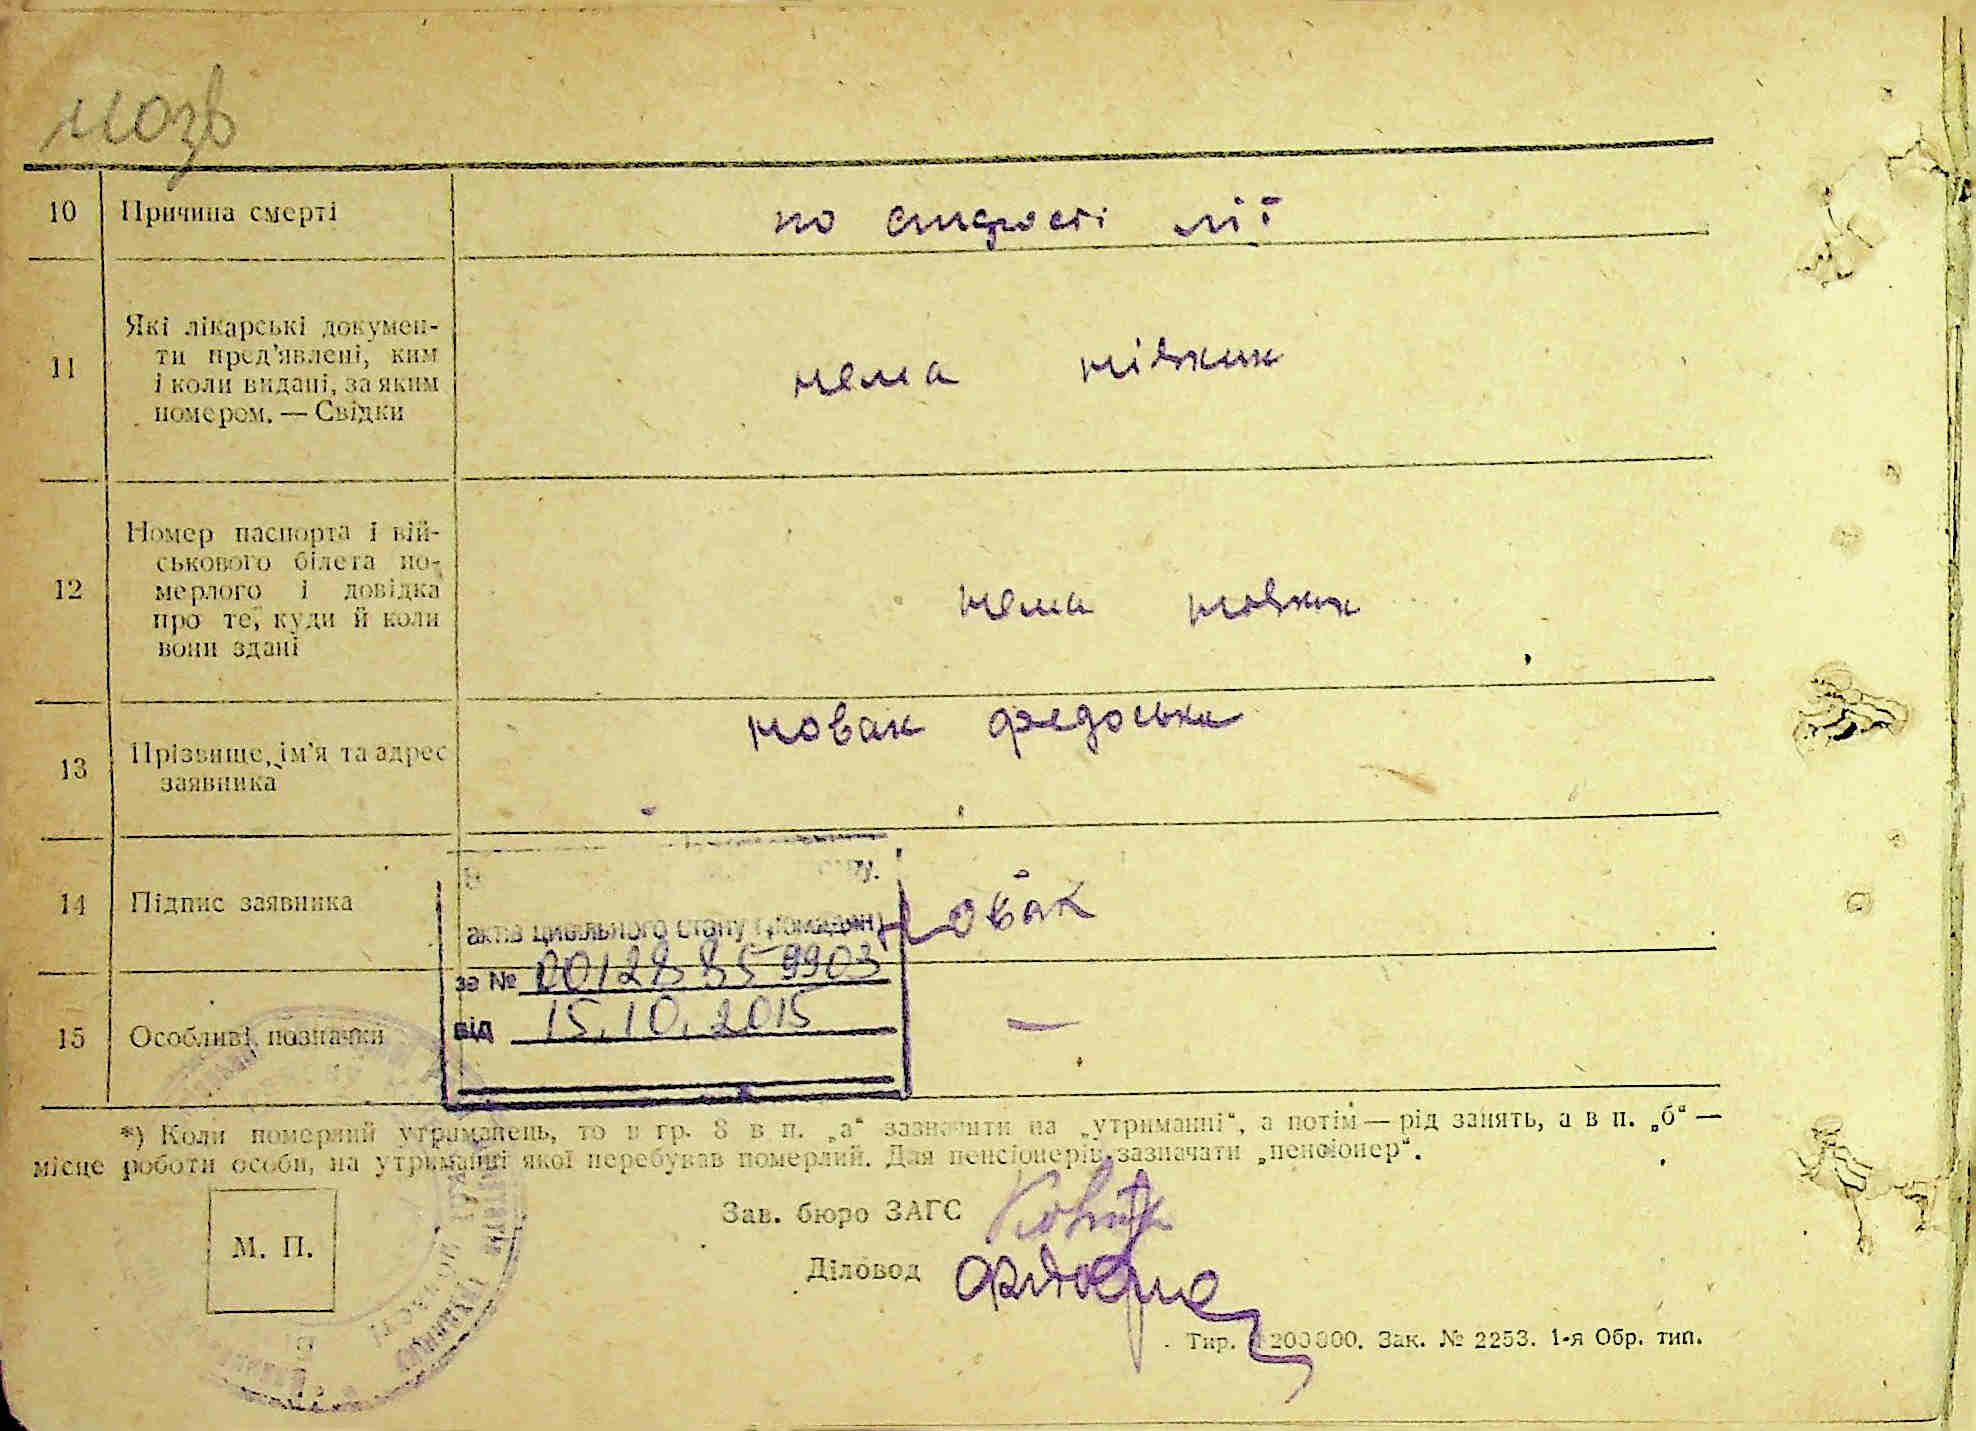 10 Причина смерті по старості лії
11 Які лікарські докумен-
ти пред'явлені, ким
і коли видані, за яким
номером. — Свідки
нема ніяких
12 Номер паспорта і вій-
ськового білета по-
мерлого і довідка
про те, куди й коли
вони здані
нема
13 Прізвище, ім'я та адрес
заявника
Новак Федоська
14 Підпис заявника Новак
актів цивільного стану громадян
за № 00128859903
від 15.10.2015
15 Особливі позначки —
*) Коли померлий утриманець, то в гр. 8 в п. „а“ зазначити на „утриманні“, а потім — рід занять, а в п. „б“ —
місце роботи особи, на утриманні якої перебував померлий. Для пенсіонерів зазначати „пенсіонер“.
Зав. бюро ЗАГС
М. П.
Діловод
Тир. 1200000. Зак. № 2253. 1-я Обр. тип.